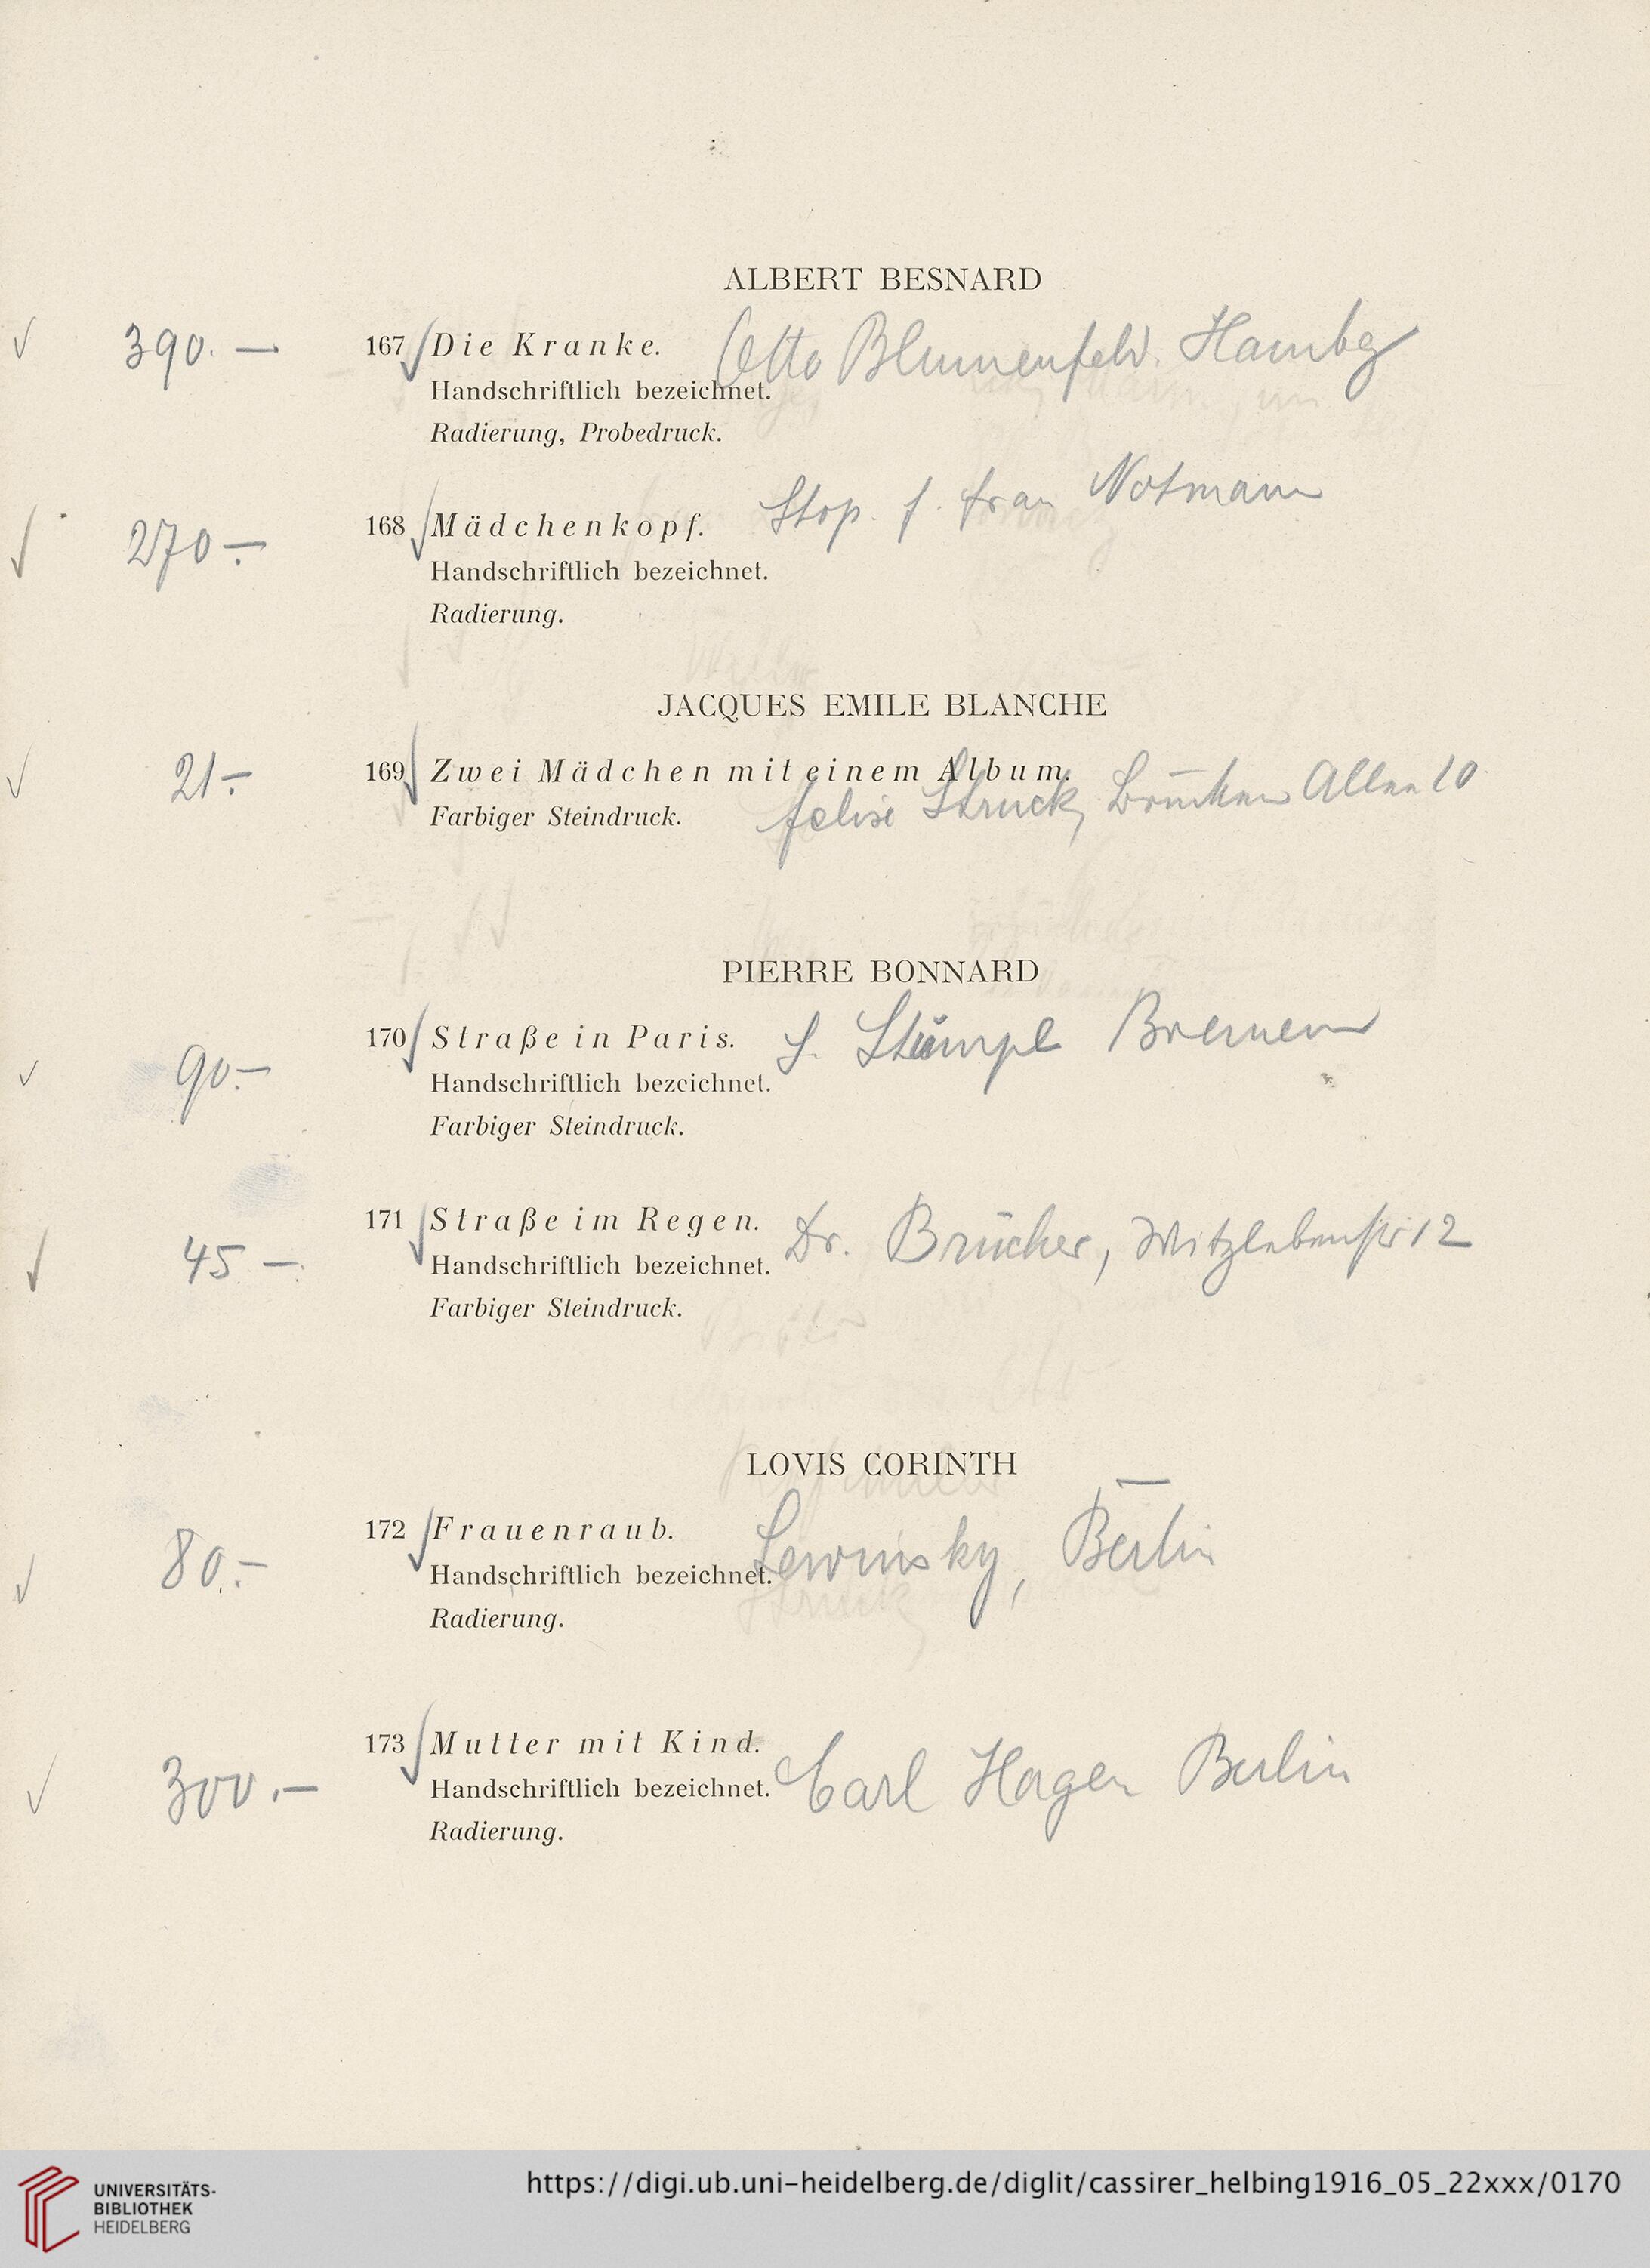 ALBERT BESNARD
390.— 167 Die Kranke. Otto Blumenfeld. Hambg
Handschriftlich bezeichnet.
Radierung, Probedruck.
270.— 168 Mädchenkopf. Stop. f. Frau Notmann
Handschriftlich bezeichnet.
Radierung.
JACQUES EMILE BLANCHE
21.— 169 Zwei Mädchen mit einem Album.
Farbiger Steindruck. Struck, Brücken Allee 10
PIERRE BONNARD
170 Straße in Paris. Bremen
90.— Handschriftlich bezeichnet.
Farbiger Steindruck.
171 Straße im Regen. Dr. Brücher, Witzlebenstr 12
45.— Handschriftlich bezeichnet.
Farbiger Steindruck.
LOVIS CORINTH
172 Frauenraub. Lewinsky, Berlin
80.— Handschriftlich bezeichnet.
Radierung.
173 Mutter mit Kind.
300.— Handschriftlich bezeichnet. Carl Hagen Berlin
Radierung.
UNIVERSITÄTS-
BIBLIOTHEK
HEIDELBERG
https://digi.ub.uni-heidelberg.de/diglit/cassirer_helbing1916_05_22xxx/0170